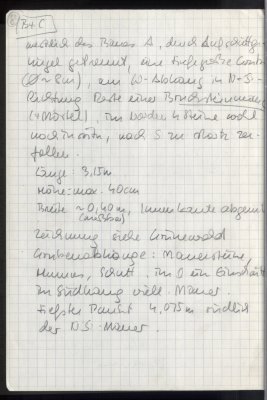 B+C
westlich des Baues A, durch Aufschüttungs-
hügel getrennt, eine tiefgehende
(Ø ~ 8m), am W-Abhang in N-S-
Richtung Reste einer Bruchsteinmauer
(+ Mörtel), im Norden 4 Steine noch
noch in situ, nach S zu stark zer-
fallen.
Länge: 3,15m
Höhe: max. 40cm
Breite ~ 0,40m, Innenkante
(messbar)
Zeichnung siehe Grünewald
Grubenabhänge: Mauersteine,
Humus, Schutt. Im O ein
im Südhang viell. Mauer.
tiefster Punkt 4,075m südlich
der N-S-Mauer.